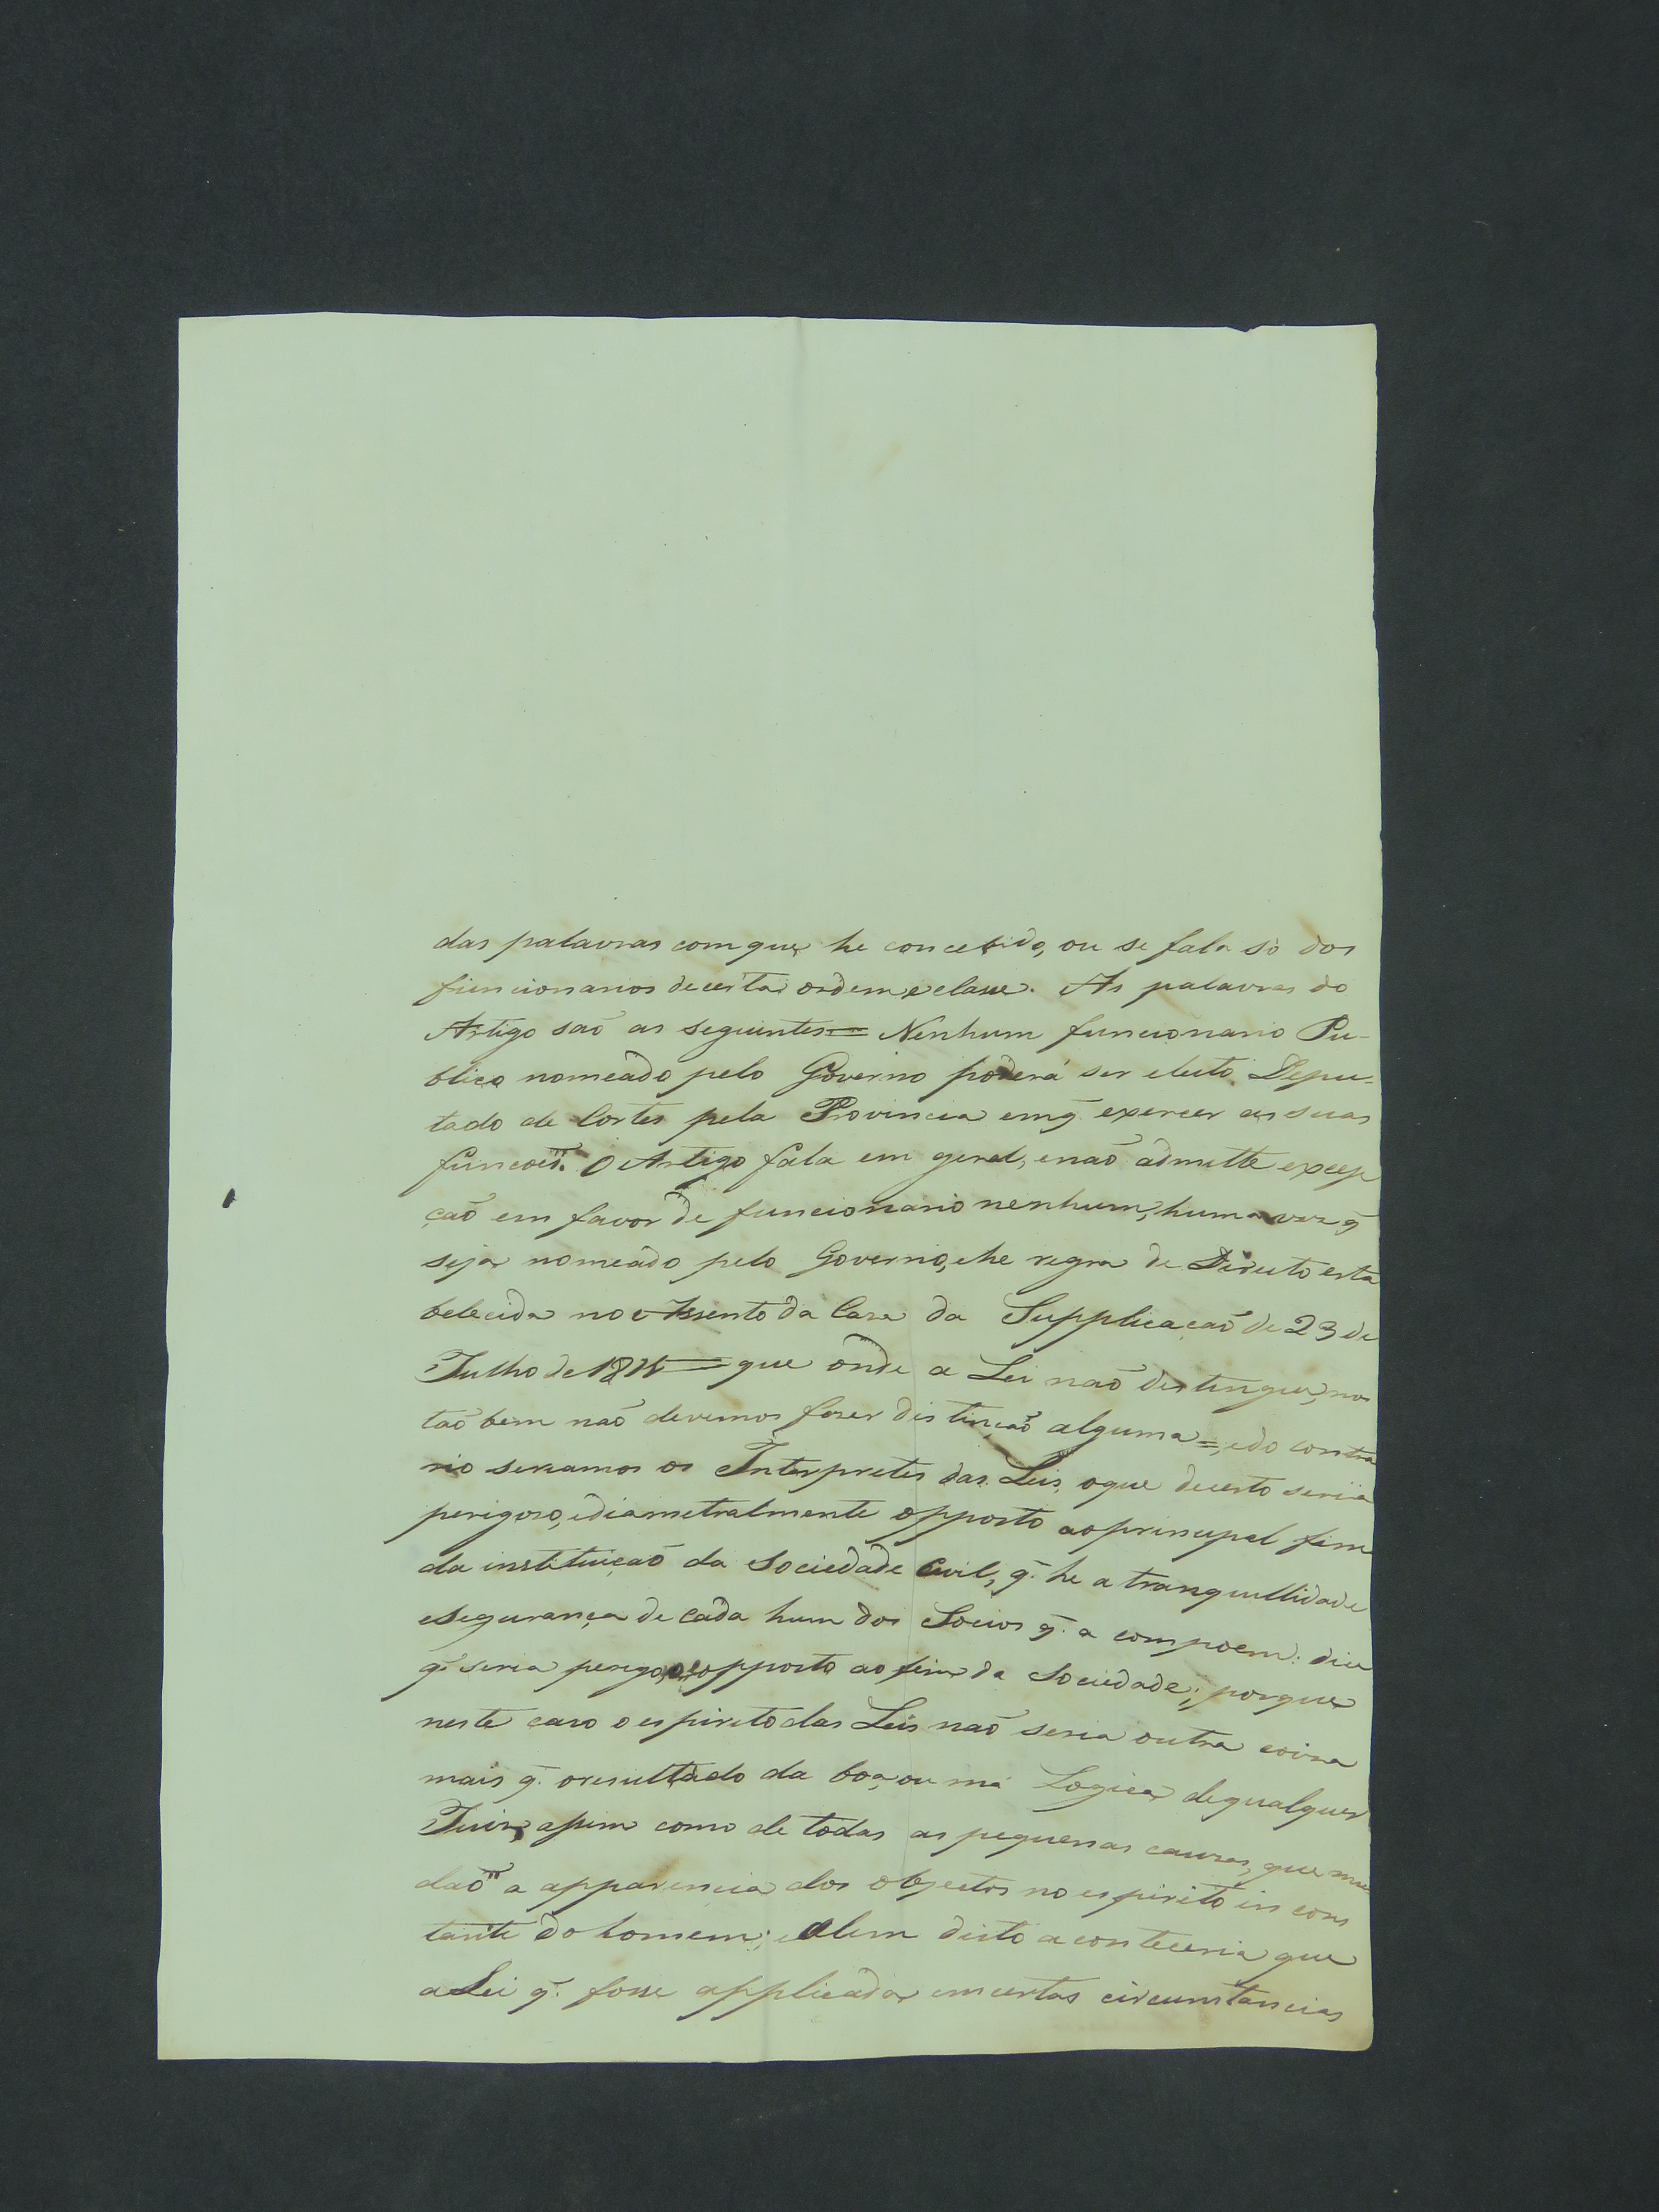 das palavras com que he concebido, ou se fala só dos
funcionarios de certa ordem e classe. As palavras do
Artigo saõ as seguintes = Nenhum funcionario Pu-
blico nomeado pelo Governo poderá ser eleito Depu-
tado de Cortes pela Provincia em q̃ exercer as suas
funcoẽs. O Artigo fala em geral, e naõ admitte excep
çaõ em favor de funcionario nenhum, huma vez q̃
seja nomeado pelo Governo, e he regra de Direito esta
belecida no Assento da Casa da Supplicaçaõ de 23 de
Julho de = que onde a Lei naõ destingue, nos
taõ bem naõ devemos fazer distinçaõ alguma =, e do contra
rio seriamos os Interpretes das Leis, o que decerto seria
perigoso, e diametralmente opposto ao principal fim
da instituiçaõ da Sociedade Civil, q̃ he a tranquillidade
e Segurança de cada hum dos Socios q̃ a compoem: dice
q̃ seria perigoso, e opposto ao fim da Sociedade; porque
neste caso o espirito das Leis naõ seria outra coiza
mais q̃ o resultado da boa, ou má Logica de qualquer
Juiz, assim como de todas as pequenas causas, que mu
daõ a apparencia dos objectos no espirito incons
tante do homem; e alem disto aconteceria que
a Lei q̃ fosse applicada em certas circumstancias